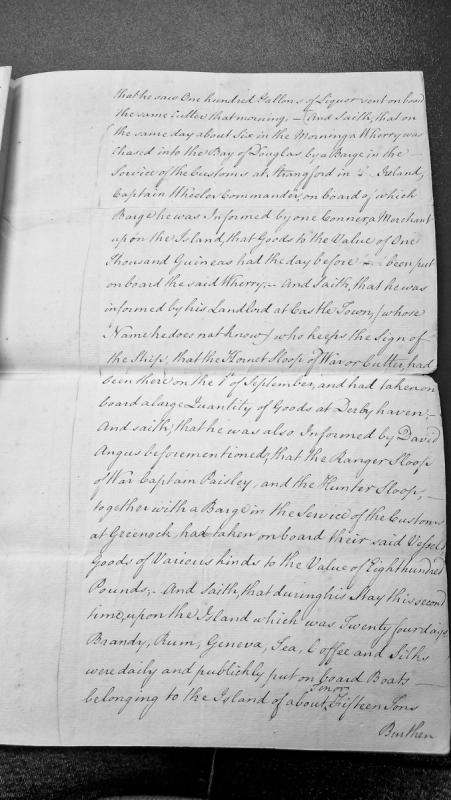 that he saw One hundred Gallons of Liquor sent on board
the same Cutter that morning, — And Saith, that on
the same day about Six in the Morning a Wherry was
Chased into the Bay of Douglas by a Barge in the —
Service of the Customs at Strangford in Ireland,
Captain Wheeler Commander, on board of which
Barge he was Informed by one Conner, a Merchant
upon the Island, that Goods to the Value of One
Thousand Guineas had the day before been put
on board the said Wherry;— And Saith, that he was
informed by his Landlord at Castle Town, (whose
Name he does not know) who keeps the Sign of
the Ship, that the Hornet Sloop of War or Cutter, had
been there on the 1st of September, and had taken on
board a large Quantity of Goods at Derby haven;—
And saith, that he was also Informed by David
Angus beforementioned, that the Ranger Sloop
of War Captain Paisley, and the Hunter Sloop, —
together with a Barge in the Service of the Customs
at Greenock, had taken on board their said Vessels
Goods of Various kinds to the Value of Eight hundred
Pounds;— And Saith, that during his Stay this second
time, upon the Island which was Twenty four days
Brandy, Rum, Geneva, Tea, Coffee and Silks
were daily and publickly put on board Boats —
belonging to the Island of about Ten or Fifteen Tons
Burthen